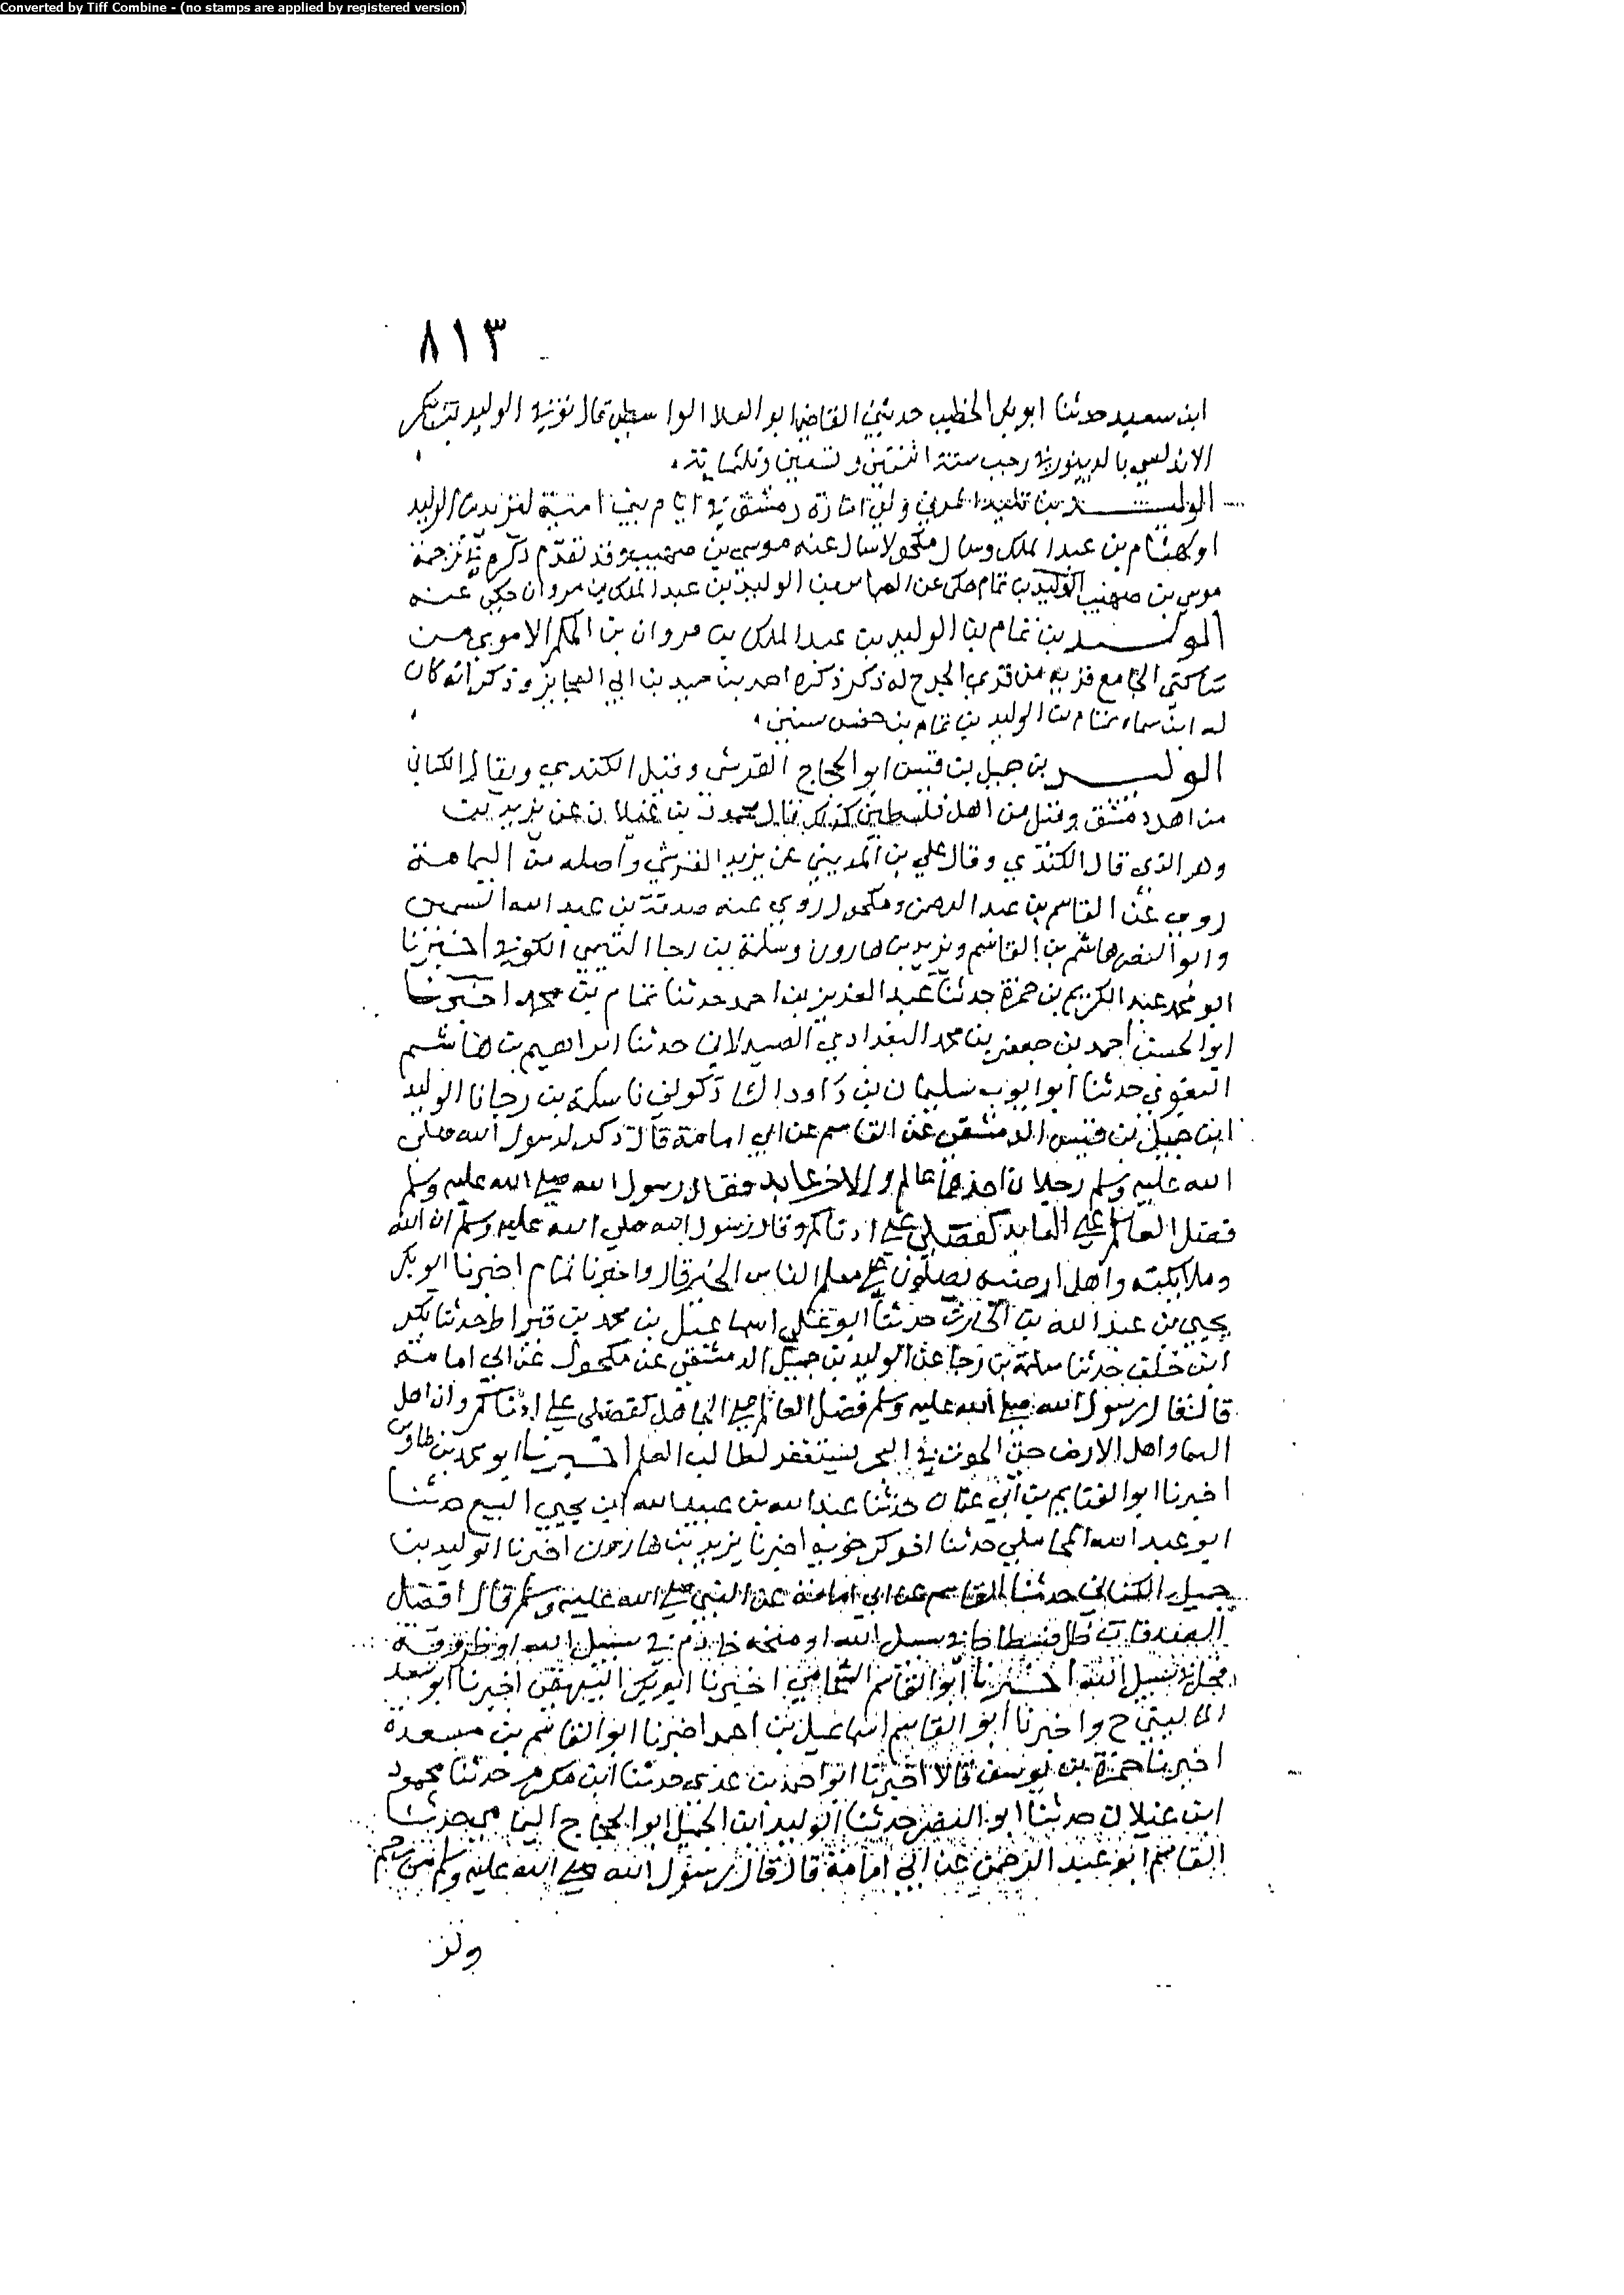 Converted by Tiff Combine - (no stamps are applied by registered version)
٨١٣
ابن سعيد حدثنا ابو بكر الخطيب حدثني القاضي ابو العلا الواسطي قال توفي الوليد بن بكر
الاندلسي بالدينور في رجب سنة اثنتين وتسعين وثلثماية
الوليد بن تليد المري ولي امارة دمشق في ايام بني امية ليزيد بن الوليد
او لهشام بن عبد الملك وسال مكحولا سال عنه موسى بن صهيب وقد تقدم ذكره في ترجمة
موسى بن صهيب الوليد بن تمام حكى عن العباس بن الوليد بن عبد الملك بن مروان حكى عنه
الوليد بن تمام بن الوليد بن عبد الملك بن مروان بن الحكم الاموي من
ساكني الجامع قرية من قرى المرج له ذكر ذكره احمد بن حميد بن ابي العجايز وذكر انه كان
له ابن سماه تمام بن الوليد بن تمام بن خمس سنين
الوليد بن جميل بن قيس ابو الحجاج القرشي وقيل الكندي ويقال الكناني
من اهل دمشق وقيل من اهل فلسطين كذلك قال محمود بن غيلان عن يزيد بن
وهو الذي قال الكندي وقال علي بن المديني عن يزيد القرشي واصله من اليمامة
روى عن القاسم بن عبد الرحمن ومكحول روى عنه صدقة بن عبد الله السمين
وابو النضر هاشم بن القاسم ويزيد بن هارون وسلمة بن رجا التيمي الكوفي اخبرنا
ابو محمد عبد الكريم بن حمزة حدثنا عبد العزيز بن احمد حدثنا تمام بن محمد اخبرنا
ابو الحسن احمد بن جعفر بن محمد البغدادي الصيدلاني حدثنا ابراهيم بن هاشم
البغوي حدثنا ابو ايوب سليمان بن داود الشاذكوني نا سلمة بن رجا نا الوليد
ابن جميل بن قيس الدمشقي عن القاسم عن ابي امامة قال ذكر لرسول الله صلى
الله عليه وسلم رجلان احدهما عالم والاخر عابد فقال رسول الله صلى الله عليه وسلم
فضل العالم على العابد كفضلي على ادناكم وقال رسول الله صلى الله عليه وسلم ان الله
وملايكته واهل ارضيه يصلون على معلم الناس الخير قال واخبرنا تمام اخبرنا ابو بكر
يحيى بن عبد الله بن الحارث حدثنا ابو علي اسماعيل بن محمد بن قيراط حدثنا بكر
ابن خلف حدثنا سلمة بن رجا عن الوليد بن جميل الدمشقي عن مكحول عن ابي امامة
قال قال رسول الله صلى الله عليه وسلم فضل العالم على الجاهل كفضلي على ادناكم وان اهل
السما واهل الارض حتى الحوت في البحر يستغفر لطالب العلم اخبرنا ابو محمد بن طاوس
اخبرنا ابو الغنايم بن ابي عثمان حدثنا عبد الله بن عبيد الله ابن يحيى البيع حدثنا
ابو عبد الله المحاملي حدثنا اخو كرخويه اخبرنا يزيد بن هارون اخبرنا الوليد بن
جميل الكناني حدثنا القاسم عن ابي امامة عن النبي صلى الله عليه وسلم قال افضل
الصدقات ظل فسطاط في سبيل الله او منحة خادم في سبيل الله او طروقة
فحل في سبيل الله اخبرنا ابو القاسم الشحامي اخبرنا ابو بكر البيهقي اخبرنا ابو سعد
الماليني ح واخبرنا ابو القاسم اسماعيل بن احمد اخبرنا ابو القاسم بن مسعدة
اخبرنا حمزة بن يوسف قالا اخبرنا ابو احمد بن عدي حدثنا ابن مكرم حدثنا محمود
ابن غيلان حدثنا ابو النضر حدثنا الوليد ابن الجميل ابو الحجاج اليمامي حدثنا
القاسم ابو عبد الرحمن عن ابي امامة قال قال رسول الله صلى الله عليه وسلم من